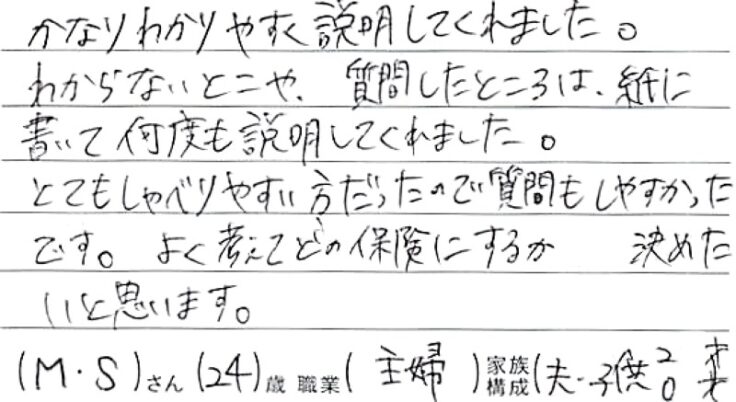 かなりわかりやすく説明してくれました。
わからないとこや、質問したところは、紙に
書いて何度も説明してくれました。
とてもしゃべりやすい方だったので質問もしやすかった
です。よく考えてどの保険にするか 決めた
いと思います。
(M・S)さん(24)歳 職業(主婦)家族構成(夫・子供2才 0才